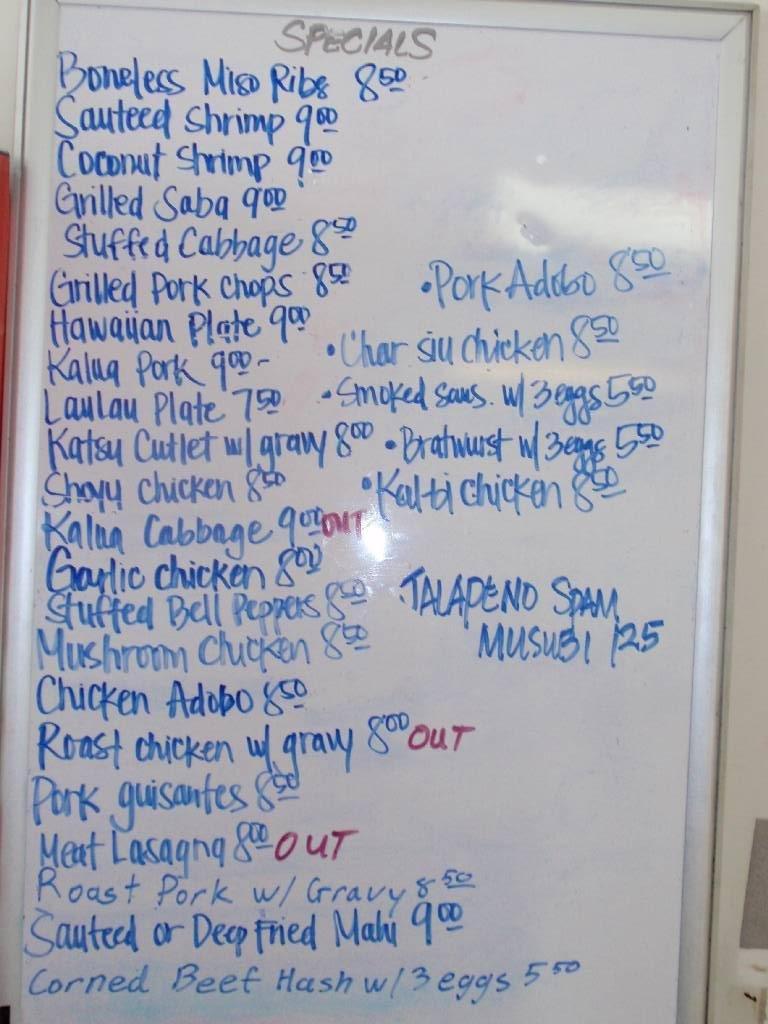 SPECIALS
Boneless Miso Ribs 8 50
Sauteed Shrimp 9 00
Coconut Shrimp 9 00
Grilled Saba 9 00
Stuffed Cabbage 8 50
Grilled Pork Chops 8 50
Hawaiian Plate 9 00
Kalua Pork 9 00 -
Laulau Plate 7 50
Katsu Cutlet w/ gravy 8 00
Shoyu chicken 8 50
Kalua Cabbage 9 00 OUT
Garlic chicken 8 00
Stuffed Bell Peppers 8 50
Mushroom Chicken 8 50
Chicken Adobo 8 50
Roast chicken w/ gravy 8 00 OUT
Pork guisantes 8 50
Meat Lasagna 8 00 OUT
Roast Pork w/ Gravy 8 50
Sauteed or Deep Fried Mahi 9 00
Corned Beef Hash w/ 3 eggs 5 50
• Pork Adobo 8 50
• Char siu chicken 8 50
• Smoked saus. w/ 3 eggs 5 50
• Bratwurst w/ 3 eggs 5 50
• Kal-bi chicken 8 50
• JALAPENO SPAM
MUSUBI 1 25